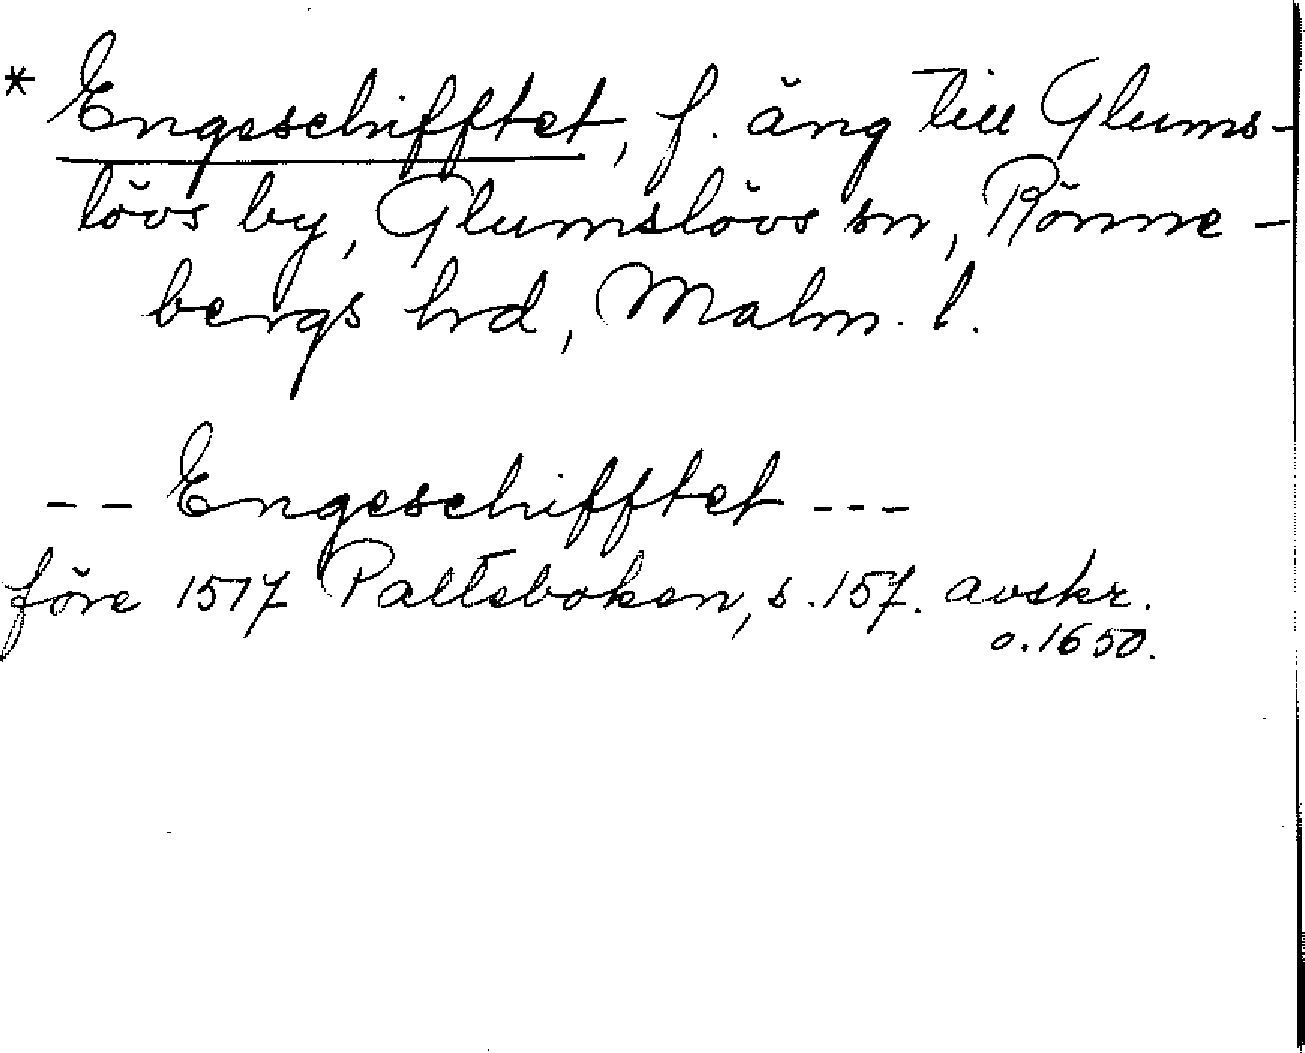 * Engeschifftet, f. äng till Glums-
lövs by, Glumslövs sn, Rönne-
bergs hrd, Malm. l.
-- Engeschifftet ---
före 1517 Palteboken, s. 157. avskr.
o. 1650.